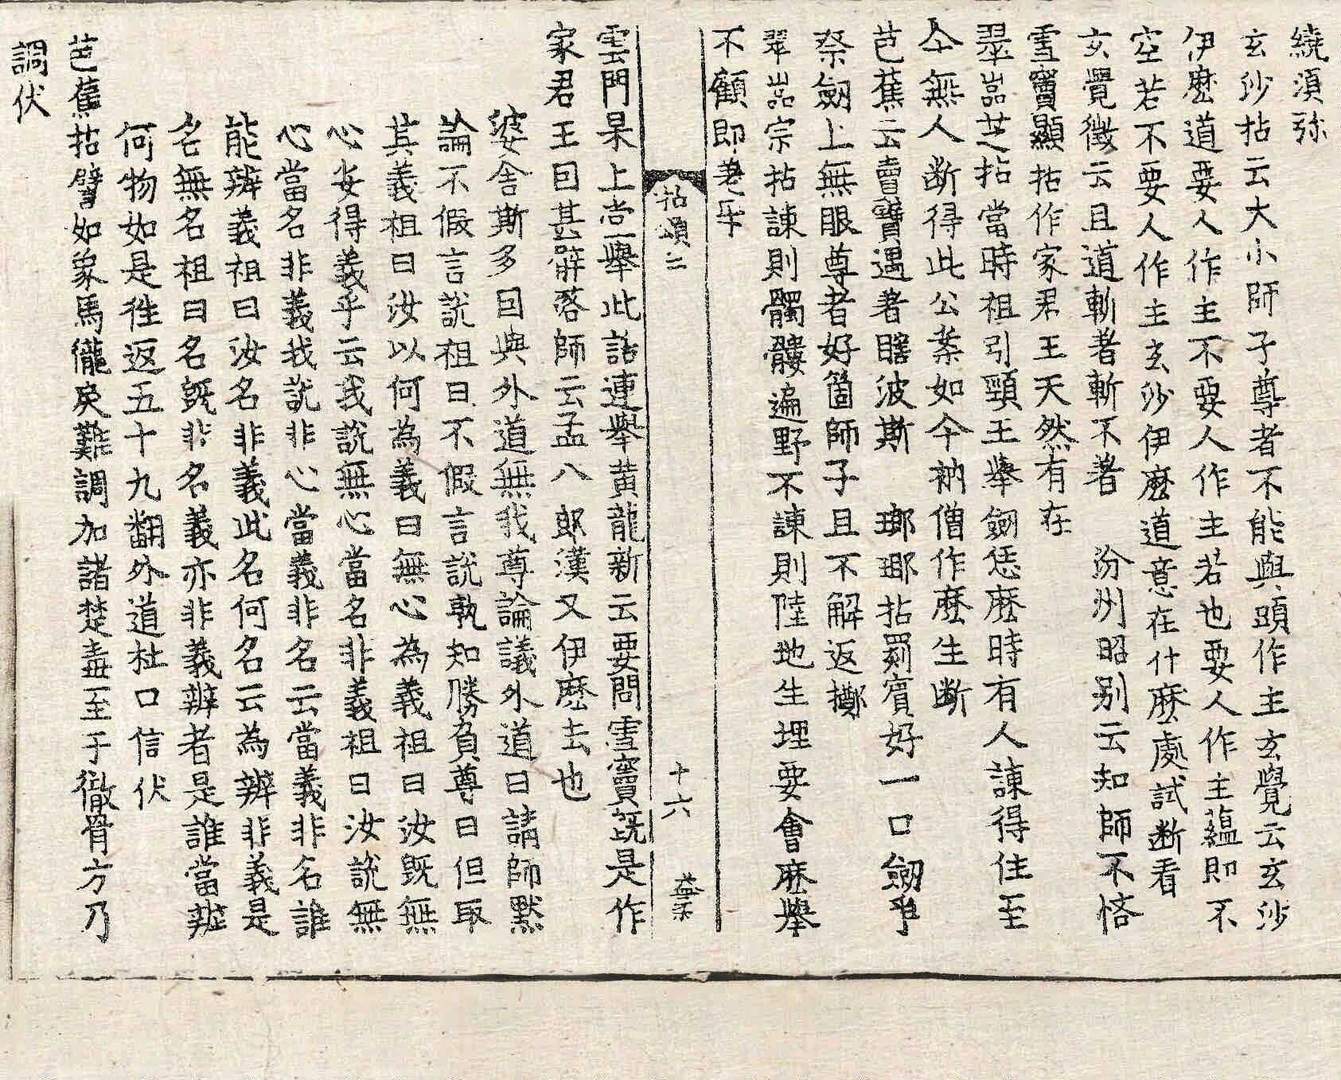 繞須弥
玄沙拈云大小師子尊者不能與頭作主玄覺云玄沙
伊麼道要人作主不要人作主若也要人作主蘊即不
空若不要人作主玄沙伊麼道意在什麼處試断看
玄覺徵云且道斬者斬不著 汾州昭别云知師不悋
雪竇顯拈作家君王天然有在
翠嵓芝拈當時祖引頸王舉劒恁麽時有人諫得住至
今無人断得此公案如今衲僧作麽生断
芭蕉云賣寶遇著瞎波斯 瑯瑘拈罽賔好一口劒乎
祭劒上無眼尊者好箇師子且不解返擲
翠嵓宗拈諫則髑髏遍野不諫則陸地生埋要會麽舉
不顧即
拈頌二
十六
雲門杲上堂舉此話連舉黄龍新云要問雪竇旣是作
家君王因甚辟落師云孟八郎漢又伊麽去也
婆舍斯多因與外道無我尊論議外道曰請師默
論不假言説祖曰不假言説孰知勝負尊曰但取
其義祖曰汝以何為義曰無心為義祖曰汝既無
心安得義乎云我説無心當名非義祖曰汝説無
心當名非義我説非心當義非名云當義非名誰
能辨義祖曰汝名非義此名何名云為辨非義是
名無名祖曰名既非名義亦非義辨者是誰當辨
何物如是徃返五十九翻外道杜口信伏
芭蕉拈譬如象馬𢤱悷難調加諸楚毒至于徹骨方乃
調伏